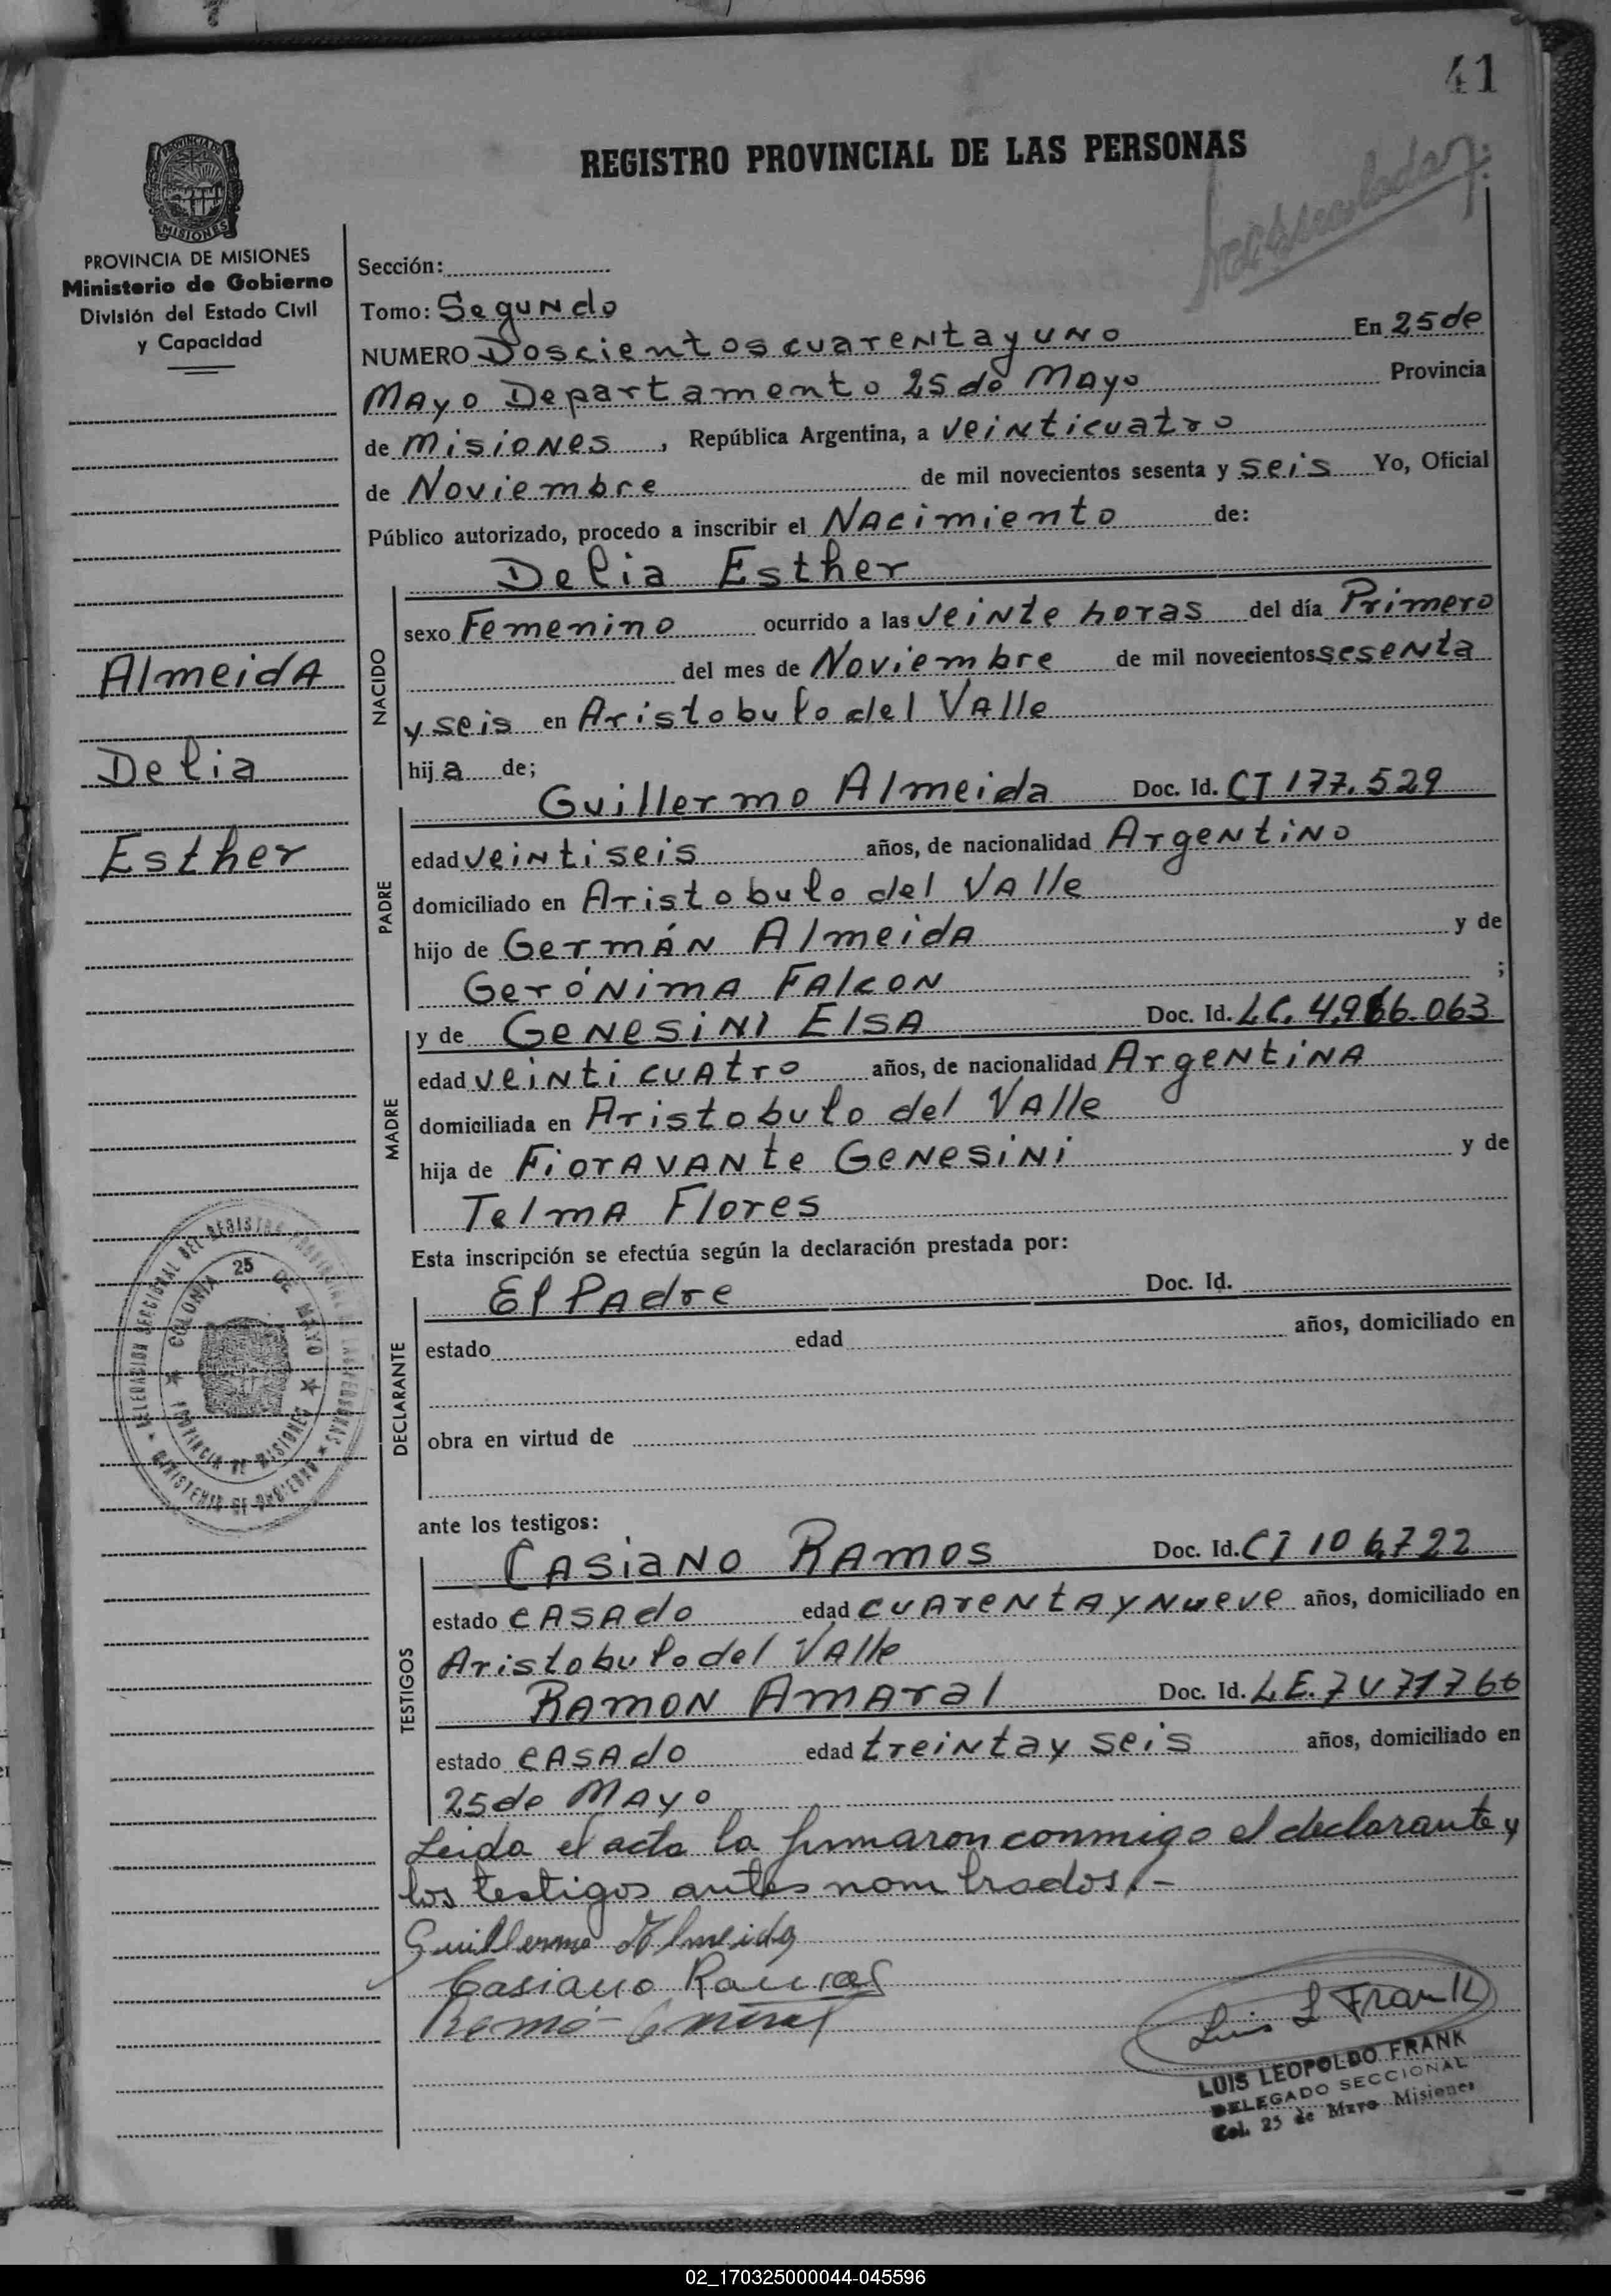 41
REGISTRO PROVINCIAL DE LAS PERSONAS
PROVINCIA DE MISIONES
Ministerio de Gobierno
División del Estado Civil
y Capacidad
Almeida
Delia
Esther
Sección:
Tomo: Segundo
NUMERO Doscientos cuarenta y uno En 25 de
Mayo Departamento 25 de Mayo Provincia
de Misiones, República Argentina, a veinticuatro
de Noviembre de mil novecientos sesenta y seis Yo, Oficial
Público autorizado, procedo a inscribir el Nacimiento de:
Delia Esther
NACIDO
sexo Femenino ocurrido a las veinte horas del día Primero
del mes de Noviembre de mil novecientos sesenta
y seis en Aristobulo del Valle
hija de;
PADRE
Guillermo Almeida Doc. Id. CI 177.529
edad veintiseis años, de nacionalidad Argentino
domiciliado en Aristobulo del Valle
hijo de Germán Almeida y de
Gerónima Falcon ;
MADRE
y de Genesini Elsa Doc. Id. LC. 4.966.063
edad veinticuatro años, de nacionalidad Argentina
domiciliada en Aristobulo del Valle
hija de Fioravante Genesini y de
Telma Flores
Esta inscripción se efectúa según la declaración prestada por:
DECLARANTE
El Padre Doc. Id.
estado edad años, domiciliado en
obra en virtud de
ante los testigos:
TESTIGOS
Casiano Ramos Doc. Id. CI 106722
estado casado edad cuarenta y nueve años, domiciliado en
Aristobulo del Valle
Ramon Amaral Doc. Id. LE.
estado casado edad treinta y seis años, domiciliado en
25 de Mayo
Leida el acta la firmaron conmigo el declarante y
los testigos antes nombrados.-
Guillermo Almeida
Casiano Ramos
Luis L Frank
LUIS LEOPOLDO FRANK
DELEGADO SECCIONAL
Col. 25 de Mayo Misiones
DELEGACION SECCIONAL DEL REGISTRO PROVINCIAL DE LAS PERSONAS
MINISTERIO DE GOBIERNO
COLONIA 25 DE MAYO
PROVINCIA DE MISIONES
02_170325000044-045596